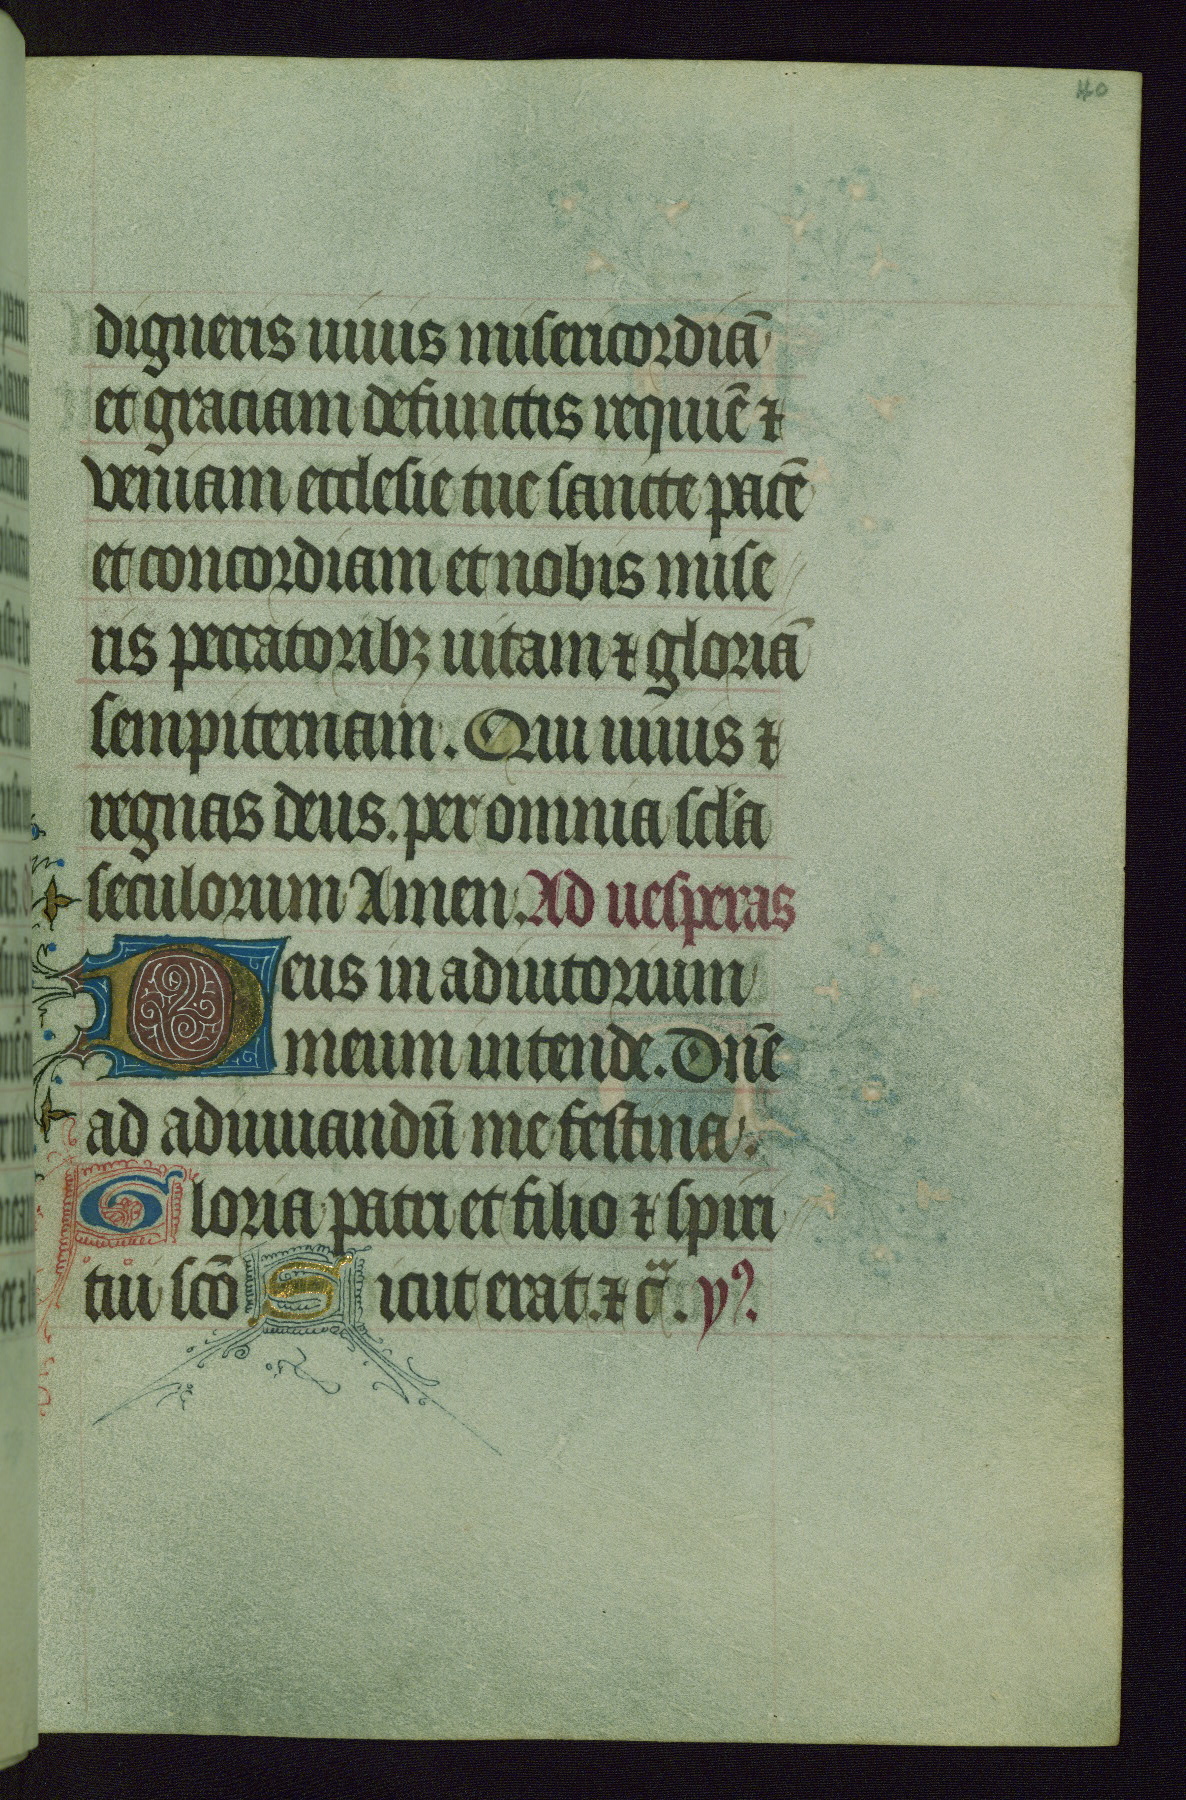 40
digneris uiuis misericordiā
et graciam defunctis requiē ⁊
veniam ecclesie tue sancte pacē
et concordiam et nobis mise
ris peccatoribꝫ uitam ⁊ gloriā
sempiternam. Qui uiuis ⁊
regnas deus. per omnia scl'a
seculorum Amen. Ad uesperas
Deus in adiutorium
meum intende. Dn̄e
ad adiuuandū me festina.
Gloria patri et filio ⁊ spiri
tui scō Sicut erat. ⁊ cᷓ. ymꝰ.